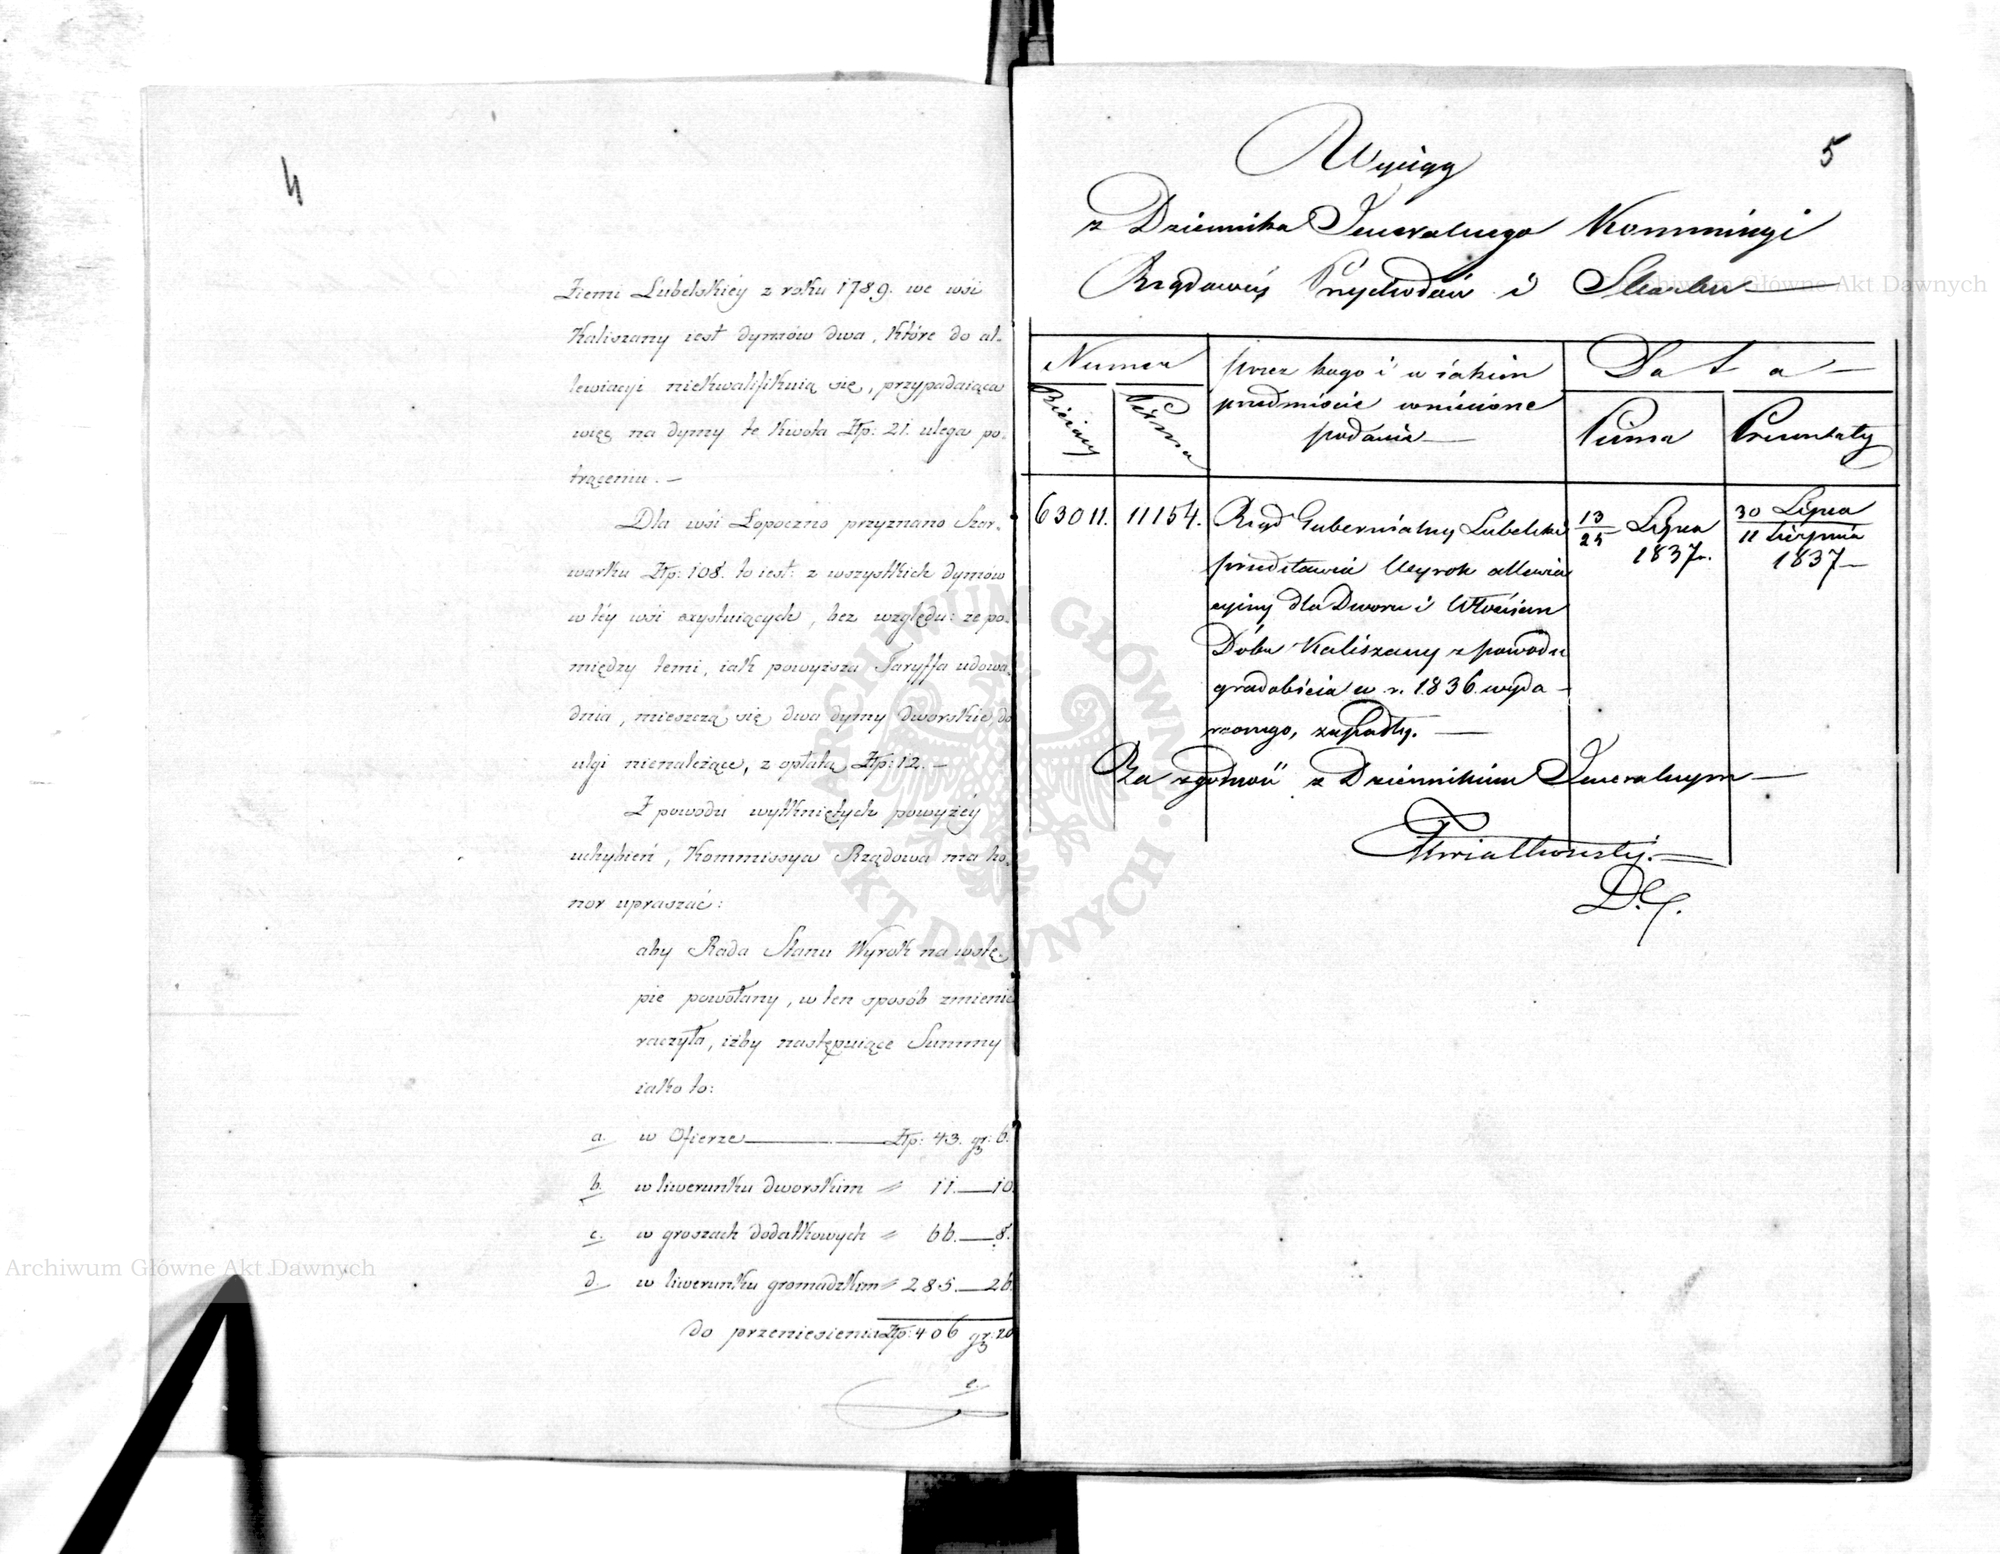 4
Ziemi Lubelskiéy z roku 1789. we wsi
Kaliszany iest dymów dwa, które do al-
lewiacyi niekwalifikuią się, przypadaiąca
więc na dymy te kwota Złp: 21. ulega po-
trąceniu. —
Dla wsi Łopoczno przyznano Szar-
warku Złp: 108. to iest: z wszystkich dymów
w téy wsi exystuiących, bez względu: że po-
między temi, iak powyższa Taryffa udowa-
dnia, mieszczą się dwa dymy dworskie, do
ulgi nienależące, z opłatą Złp: 12. —
Z powodu wytkniętych powyżéy
uchybień, Kommissya Rządowa ma ho-
nor upraszać:
aby Rada Stanu Wyrok na wstę-
pie powołany, w ten sposób zmienić
raczyła, iżby następuiące Summy
iako to:
a. w Ofierze — Złp: 43. gr: 6.
b. w liwerunku dworskim " 11. — 10.
c. w groszach dodatkowych " 66. — 8.
d. w liwerunku gromadzkim " 285. — 26.
do przeniesienia Złp: 406 gr: 20
e.
5
Wyciąg
z Dziennika Jeneralnego Kommissyi
Rządowéy Przychodów i Skarbu —
Numer
Bieżący
Pisma
przez kogo i w iakim
przedmiocie wniesione
podanie —
Data —
Pisma
Prezentaty
63011. 11154. Rząd Gubernialny Lubelski
przedstawia Wyrok allewia
cyiny dla Dworu i Włościan
Dóbr Kaliszany z powodu
gradobicia w r. 1836 wyda-
rzonego, zapadły. —
13/25 Lipca
1837 r.
30 Lipca
11 Sierpnia
1837 —
Za zgodność z Dziennikiem Jeneralnym —
Kwiatkowski. —
D. J.
Archiwum Główne Akt Dawnych
Archiwum Główne Akt Dawnych
ARCHIWUM GŁÓWNE
AKT DAWNYCH